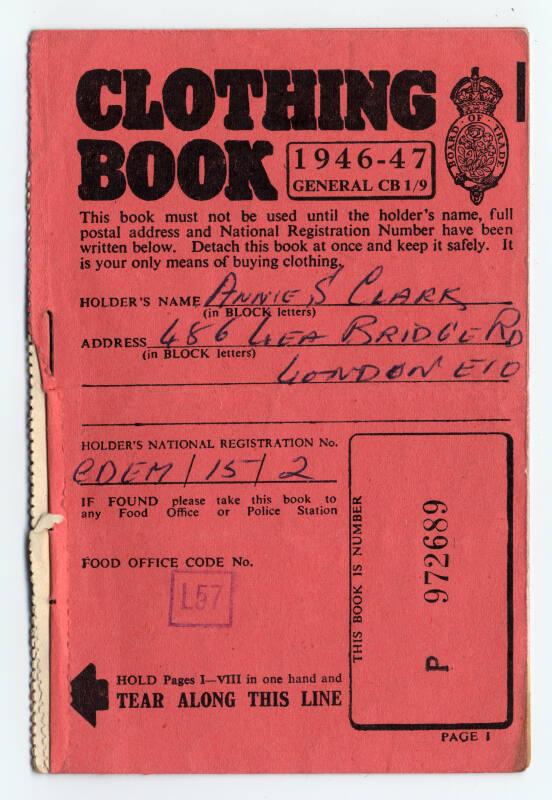 CLOTHING
BOOK
1946-47
GENERAL CB 1/9
BOARD · OF · TRADE
This book must not be used until the holder's name, full
postal address and National Registration Number have been
written below. Detach this book at once and keep it safely. It
is your only means of buying clothing.
HOLDER'S NAME ANNIE S CLARK
(in BLOCK letters)
ADDRESS 486 LEA BRIDGE RD
(in BLOCK letters)
LONDON E10
HOLDER'S NATIONAL REGISTRATION No.
CDEM/15/2
IF FOUND please take this book to
any Food Office or Police Station
FOOD OFFICE CODE No.
L57
THIS BOOK IS NUMBER
P 972689
HOLD Pages I—VIII in one hand and
TEAR ALONG THIS LINE
PAGE I